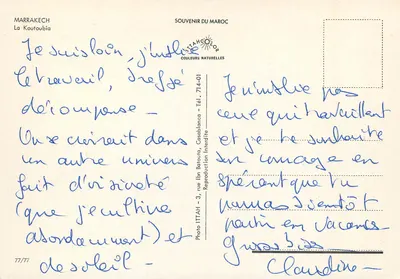 MARRAKECH
La Koutoubia
SOUVENIR DU MAROC
ITTAHCOLOR
COULEURS NATURELLES
Je suis loin, j'oublie
le travail,
décompense -
On se croirait dans
un autre univers
fait d'oisiveté
(que je cultive
abondamment) et
de soleil -
Photo ITTAH - 3, rue Ibn Batouta, Casablanca - Tél. 714-01
Reproduction Interdite
77/77
Je n'oublie pas
ceux qui travaillent
et je te souhaite
bon courage en
espérant que tu
pourras bientôt
partir en vacances
Gros bises
Claudine -